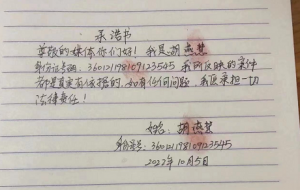 承浩书
尊敬的媒体你们好！我是胡燕慧
身份证号码：360121198109123545 我所反映的案件
都是真实有依据的，如有任何问题，我愿承担一切
法律责任！
姓名：胡燕慧
身份证号：360121198109123545
2022年10月5日